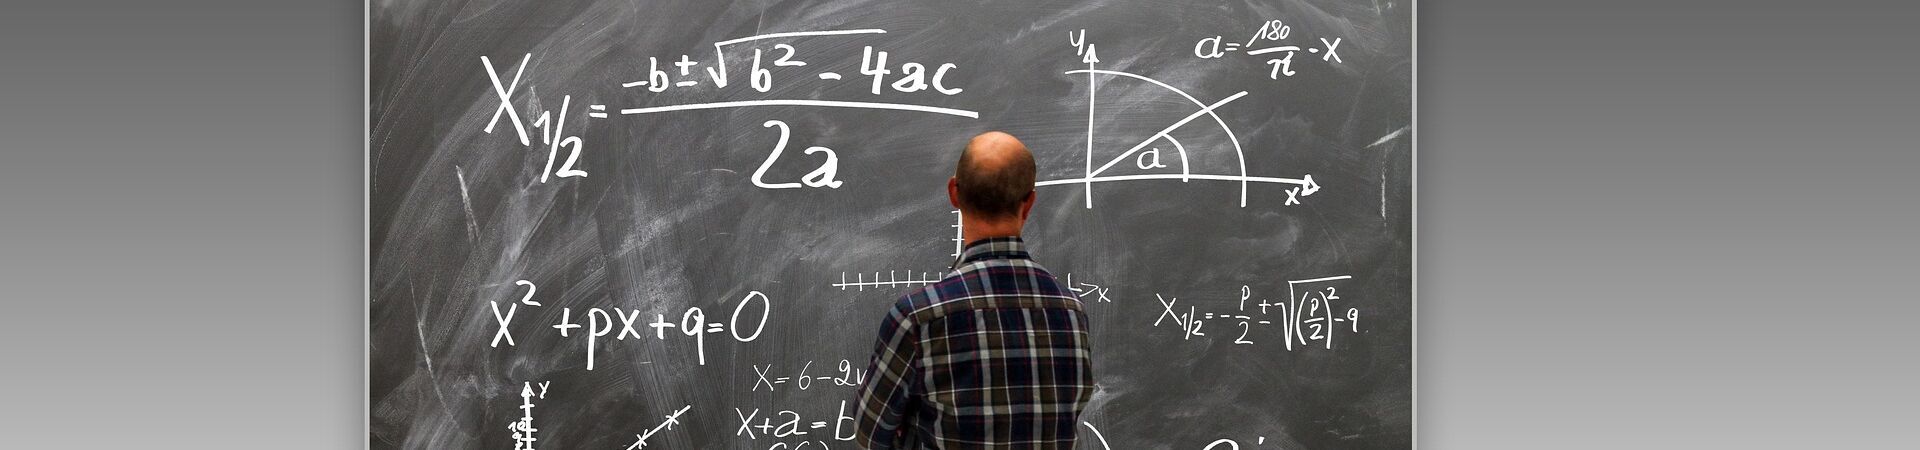 X1/2 = -b±√b²-4ac / 2a
y
a = 180/π · x
a
x
x² + px + q = 0
x
X1/2 = -p/2 ± √(p/2)² - q
X = 6 - 2
y
x + a = b